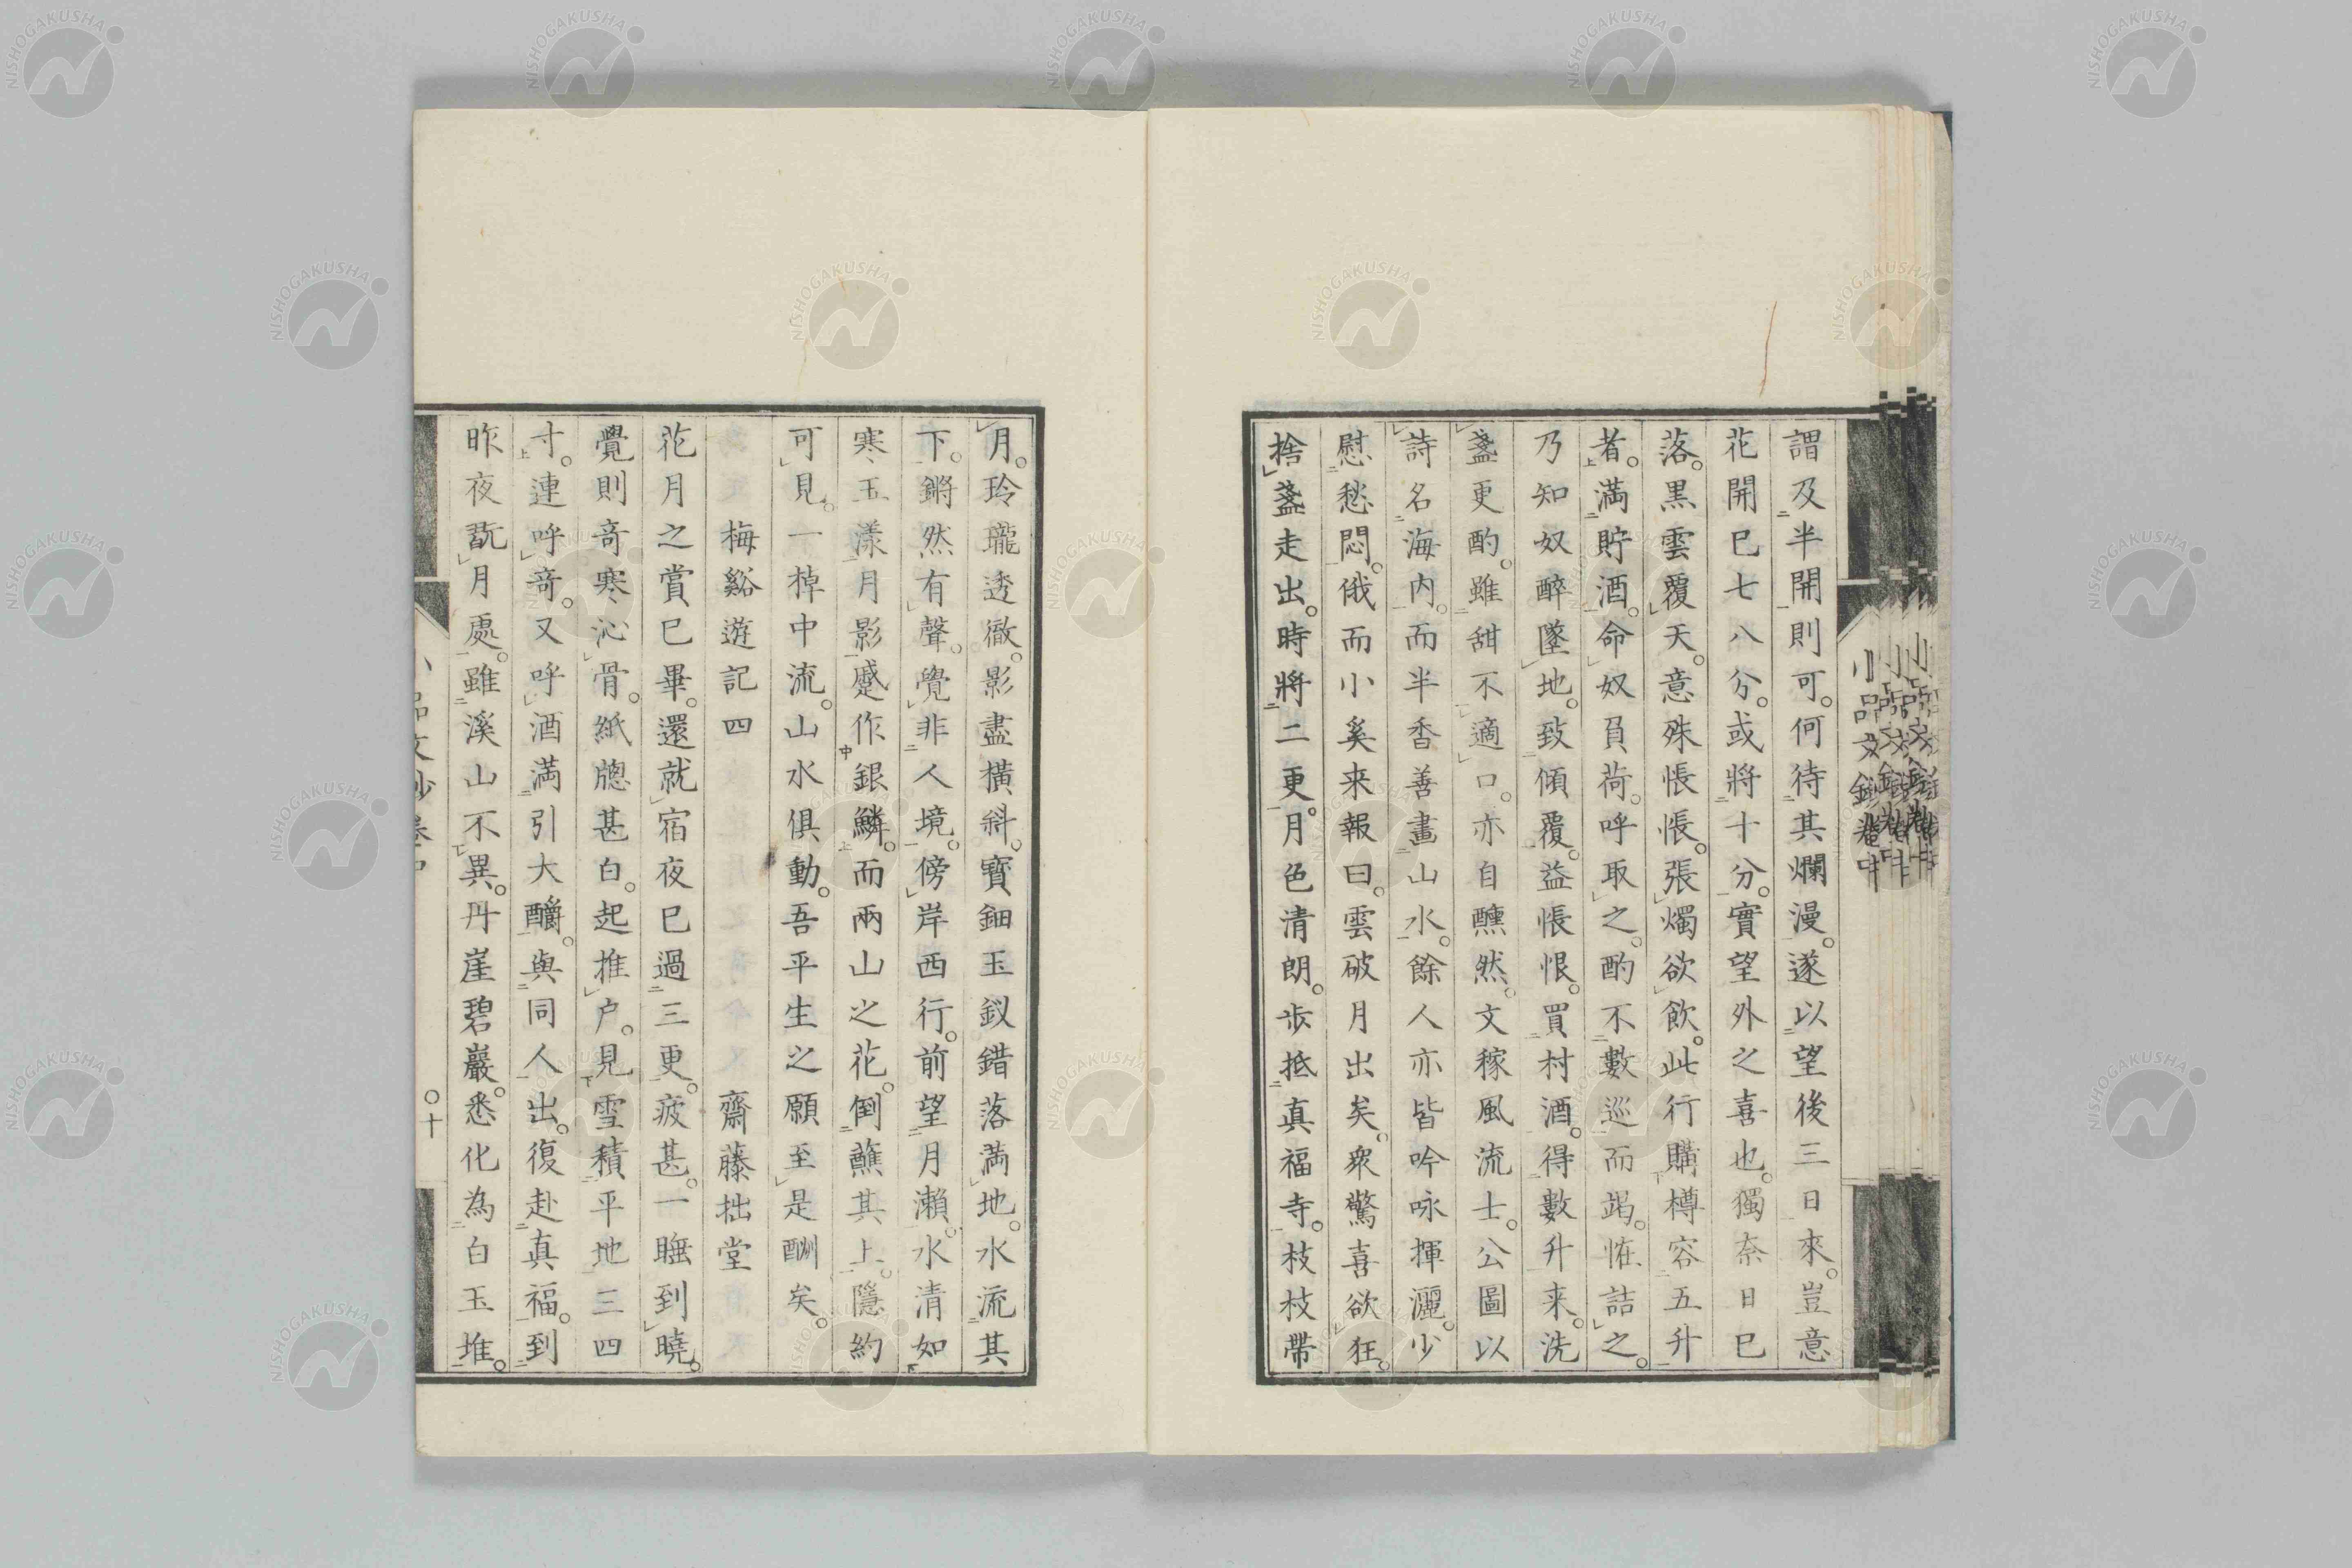 謂及半開則可。何待其爛漫。遂以望後三日來。豈意
花開已七八分。或將十分。實望外之喜也。獨奈日已
落。黒雲覆天。意殊悵悵。張燭欲飲。此行購樽容五升
者。満貯酒。命奴負荷。呼取之。酌不數巡而竭。恠詰之。
乃知奴醉墜地。致傾覆。益悵恨。買村酒。得數升来。洗
盞更酌。雖甜不適口。亦自醺然。文稼風流士。公圖以
詩名海内。而半香善畫山水。餘人亦皆吟咏揮灑。少
慰愁悶。俄而小奚来報曰。雲破月出矣。衆驚喜欲狂。
捨盞走出。時將二更。月色清朗。歩抵真福寺。枝枝帶
月。玲瓏透徹。影盡橫斜。寳鈿玉釵錯落満地。水流其
下。鏘然有聲。覺非人境。傍岸西行。前望月瀬。水清如
寒玉漾月影。蹙作銀鱗。而兩山之花。倒蘸其上。隱約
可見。一棹中流。山水俱動。吾平生之願至是酬矣。
梅谿遊記四 齋藤拙堂
花月之賞已畢。還就宿夜已過三更。疲甚。一睡到曉。
覺則竒寒沁骨。紙牕甚白。起推户。見雪積平地三四
寸。連呼竒。又呼酒満引大釂。與同人出。復赴真福。到
昨夜翫月處。雖溪山不異。丹崖碧巖。悉化為白玉堆。
小品文鈔卷中
○十
小品文鈔卷中
NISHOGAKUSHA